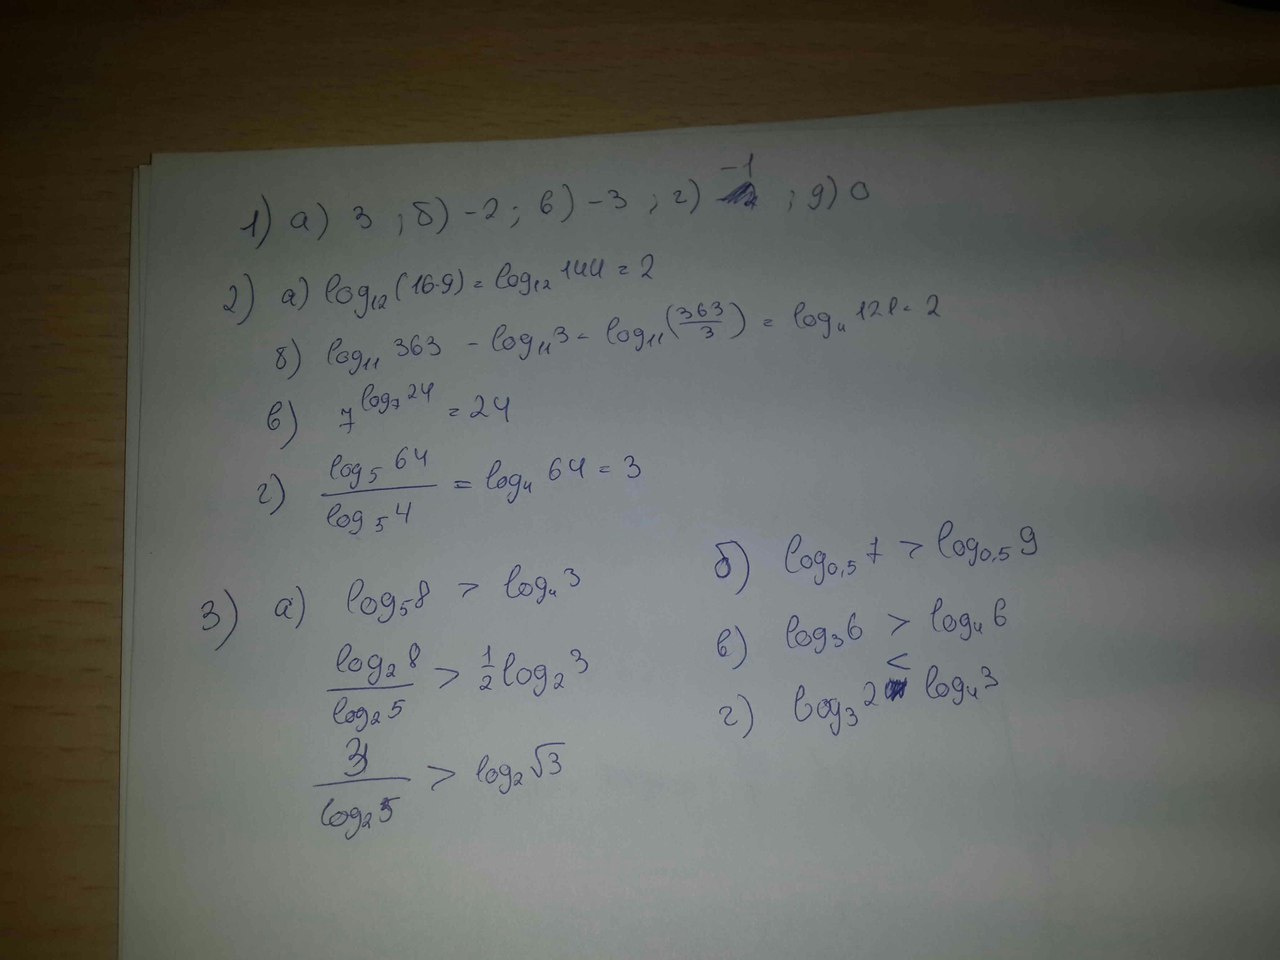 1) а) 3 ; б) -2 ; в) -3 ; г) -1 ; д) 0
2) а) log₁₂(16·9) = log₁₂ 144 = 2
б) log₁₁ 363 - log₁₁ 3 = log₁₁(363/3) = log₁₁ 121 = 2
в) 7^(log₇ 24) = 24
г) log₅ 64 / log₅ 4 = log₄ 64 = 3
3) а) log₅ 8 > log₄ 3
log₂ 8 / log₂ 5 > 1/2 log₂ 3
3 / log₂ 5 > log₂ √3
б) log₀,₅ 7 > log₀,₅ 9
в) log₃ 6 > log₄ 6
г) log₃ 2 < log₄ 3